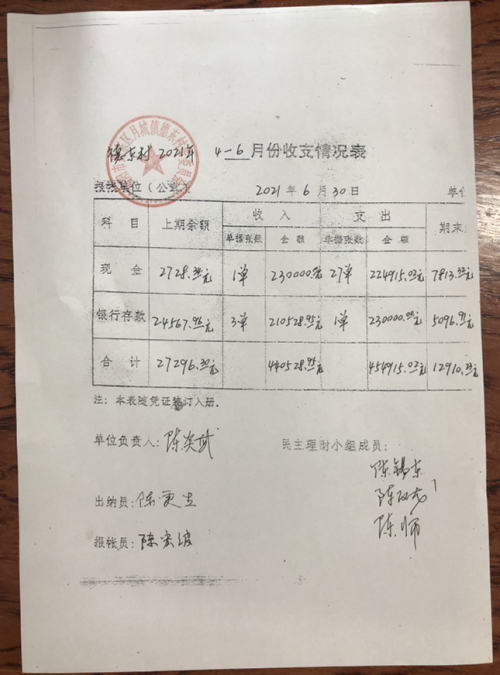 区月城镇德东村
德东村 2021年 4-6月份收支情况表
报帐单位（公章） 2021年6月30日 单
科目 上期余额 收入 支出 期末
单据张数 金额 单据张数 金额
现金 2728.36元 1单 230000.00元 27单 224915.03元 7813.33元
银行存款 24567.96元 3单 210528.95元 1单 230000.00元 5096.91元
合计 27296.32元 440528.95元 454915.03元 12910.24元
注：本表随凭证装订入册。
单位负责人：陈
民主理财小组成员：
陈锡东
陈
陈师
出纳员：陈更生
报帐员：陈宋波